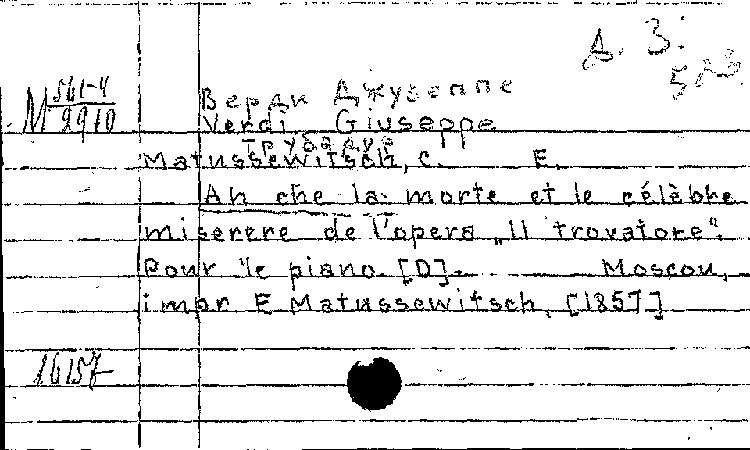 Д. 3.
523
М 561-4
2910
Верди Джузеппе
Verdi Giuseppe
Трубадур
Matussewitsch, C. E.
Ah che la morte et le célèbre
miserere de l'opera „Il trovatore".
Pour le piano. [D]. Moscou,
impr E Matussewitsch, [1857]
16157